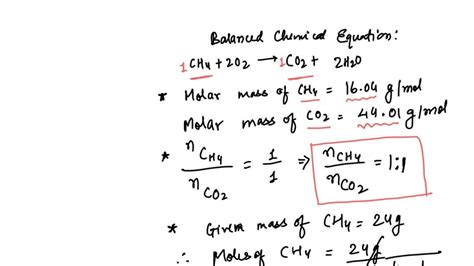 Balanced Chemical Equation:
1CH4 + 2O2 → 1CO2 + 2H2O
* Molar mass of CH4 = 16.04 g/mol
Molar mass of CO2 = 44.01 g/mol
* nCH4 / nCO2 = 1/1 ⇒ nCH4 / nCO2 = 1:1
* Given mass of CH4 = 24g
∴ Moles of CH4 = 24g